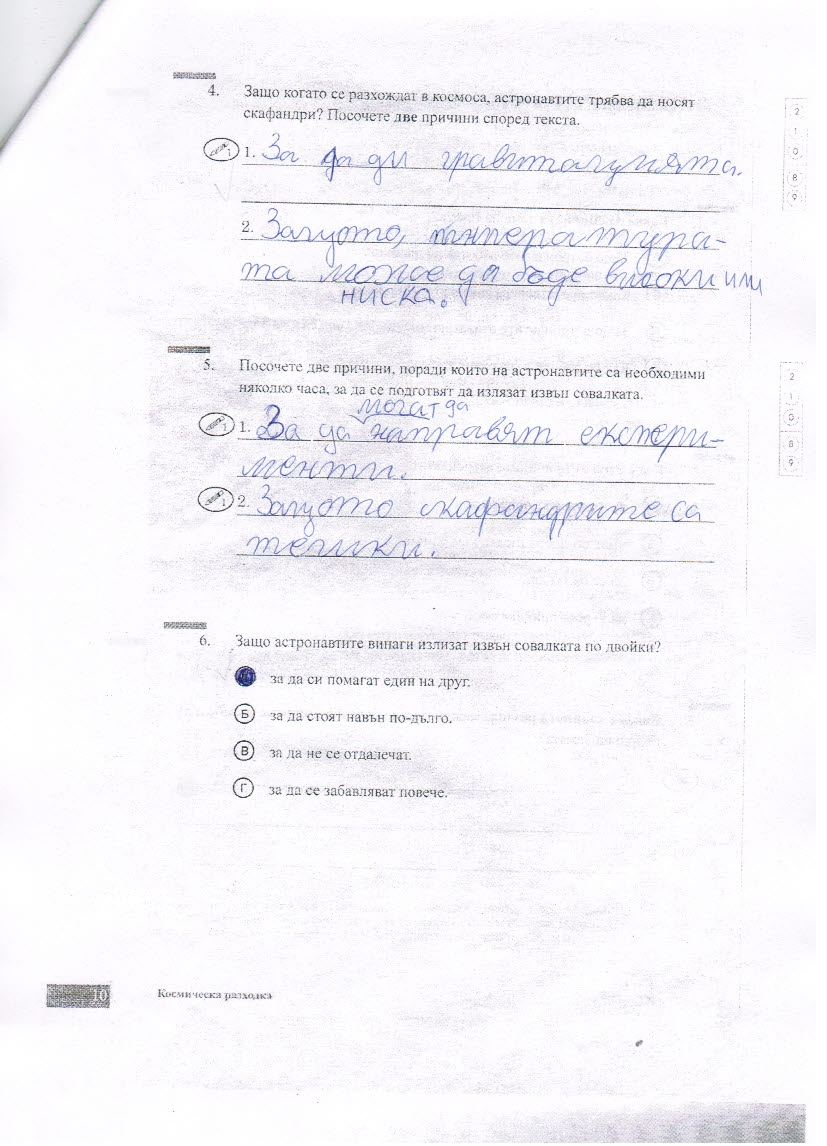 4. Защо когато се разхождат в космоса, астронавтите трябва да носят
скафандри? Посочете две причини според текста.
1 1. За да ди гравитацията.
2. Защото, тнтература-
та може да бъде високи или
ниска.
2
1
0
8
9
5. Посочете две причини, поради които на астронавтите са необходими
няколко часа, за да се подготвят да излязат извън совалката.
могат да
1 1. За да направят експери-
менти.
1 2. Защото скафандрите са
тешки.
2
1
0
8
9
6. Защо астронавтите винаги излизат извън совалката по двойки?
за да си помагат един на друг.
Б за да стоят навън по-дълго.
В за да не се отдалечат.
Г за да се забавляват повече.
10 Космическа разходка